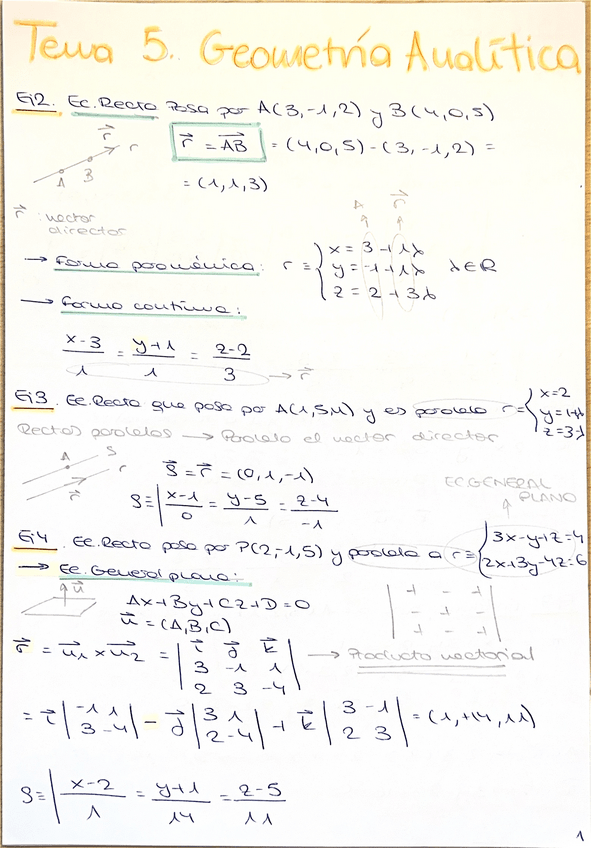 Tema 5. Geometría Analítica
Ej2. Ec. Recta Pasa por A(3,-1,2) y B(4,0,5)
r⃗ r A B
r⃗ = AB⃗ = (4,0,5)-(3,-1,2) =
= (1,1,3)
r⃗ : vector director
A r⃗
→ Forma paramétrica: r ≡ { x = 3 + 1λ
y = -1 + 1λ λ∈R
z = 2 + 3λ
→ Forma continua:
x-3/1 = y+1/1 = z-2/3 → r⃗
Ej3. Ec. Recta que pasa por A(1,5,4) y es paralela r ≡ { x=2
y=1+λ
z=3-λ
Rectas paralelas → Paralelo el vector director
A s r r⃗
s⃗ = r⃗ = (0,1,-1)
s ≡ | x-1/0 = y-5/1 = z-4/-1
EC GENERAL PLANO
Ej4. Ec. Recta pasa por P(2,-1,5) y paralela a r ≡ { 3x-y+z=4
2x+3y-4z=6
→ Ec. General plano:
u⃗
Ax+By+Cz+D=0
u⃗ = (A,B,C)
+ - +
- + -
+ - +
r⃗ = u₁⃗ × u₂⃗ = | i⃗ j⃗ k⃗ |
| 3 -1 1 | → Producto vectorial
| 2 3 -4 |
= i⃗ | -1 1 | - j⃗ | 3 1 | + k⃗ | 3 -1 | = (1,+14,11)
| 3 -4 | | 2 -4 | | 2 3 |
s ≡ | x-2/1 = y+1/14 = z-5/11
1